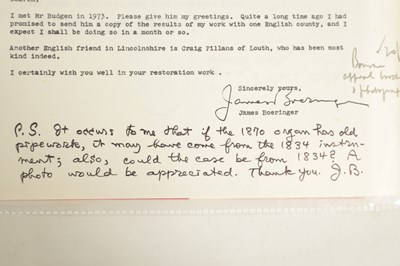 I met Mr Budgen in 1973. Please give him my greetings. Quite a long time ago I had
promised to send him a copy of the results of my work with one English county, and I
expect I shall be doing so in a month or so.
Another English friend in Lincolnshire is Craig Pillans of Louth, who has been most
kind indeed.
I certainly wish you well in your restoration work .
Sincerely yours,
James Boeringer
James Boeringer
P.S. It occurs to me that if the 1870 organ has old
pipework, it may have come from the 1834 instru-
ment; also, could the case be from 1834? A
photo would be appreciated. Thank you. J.B.